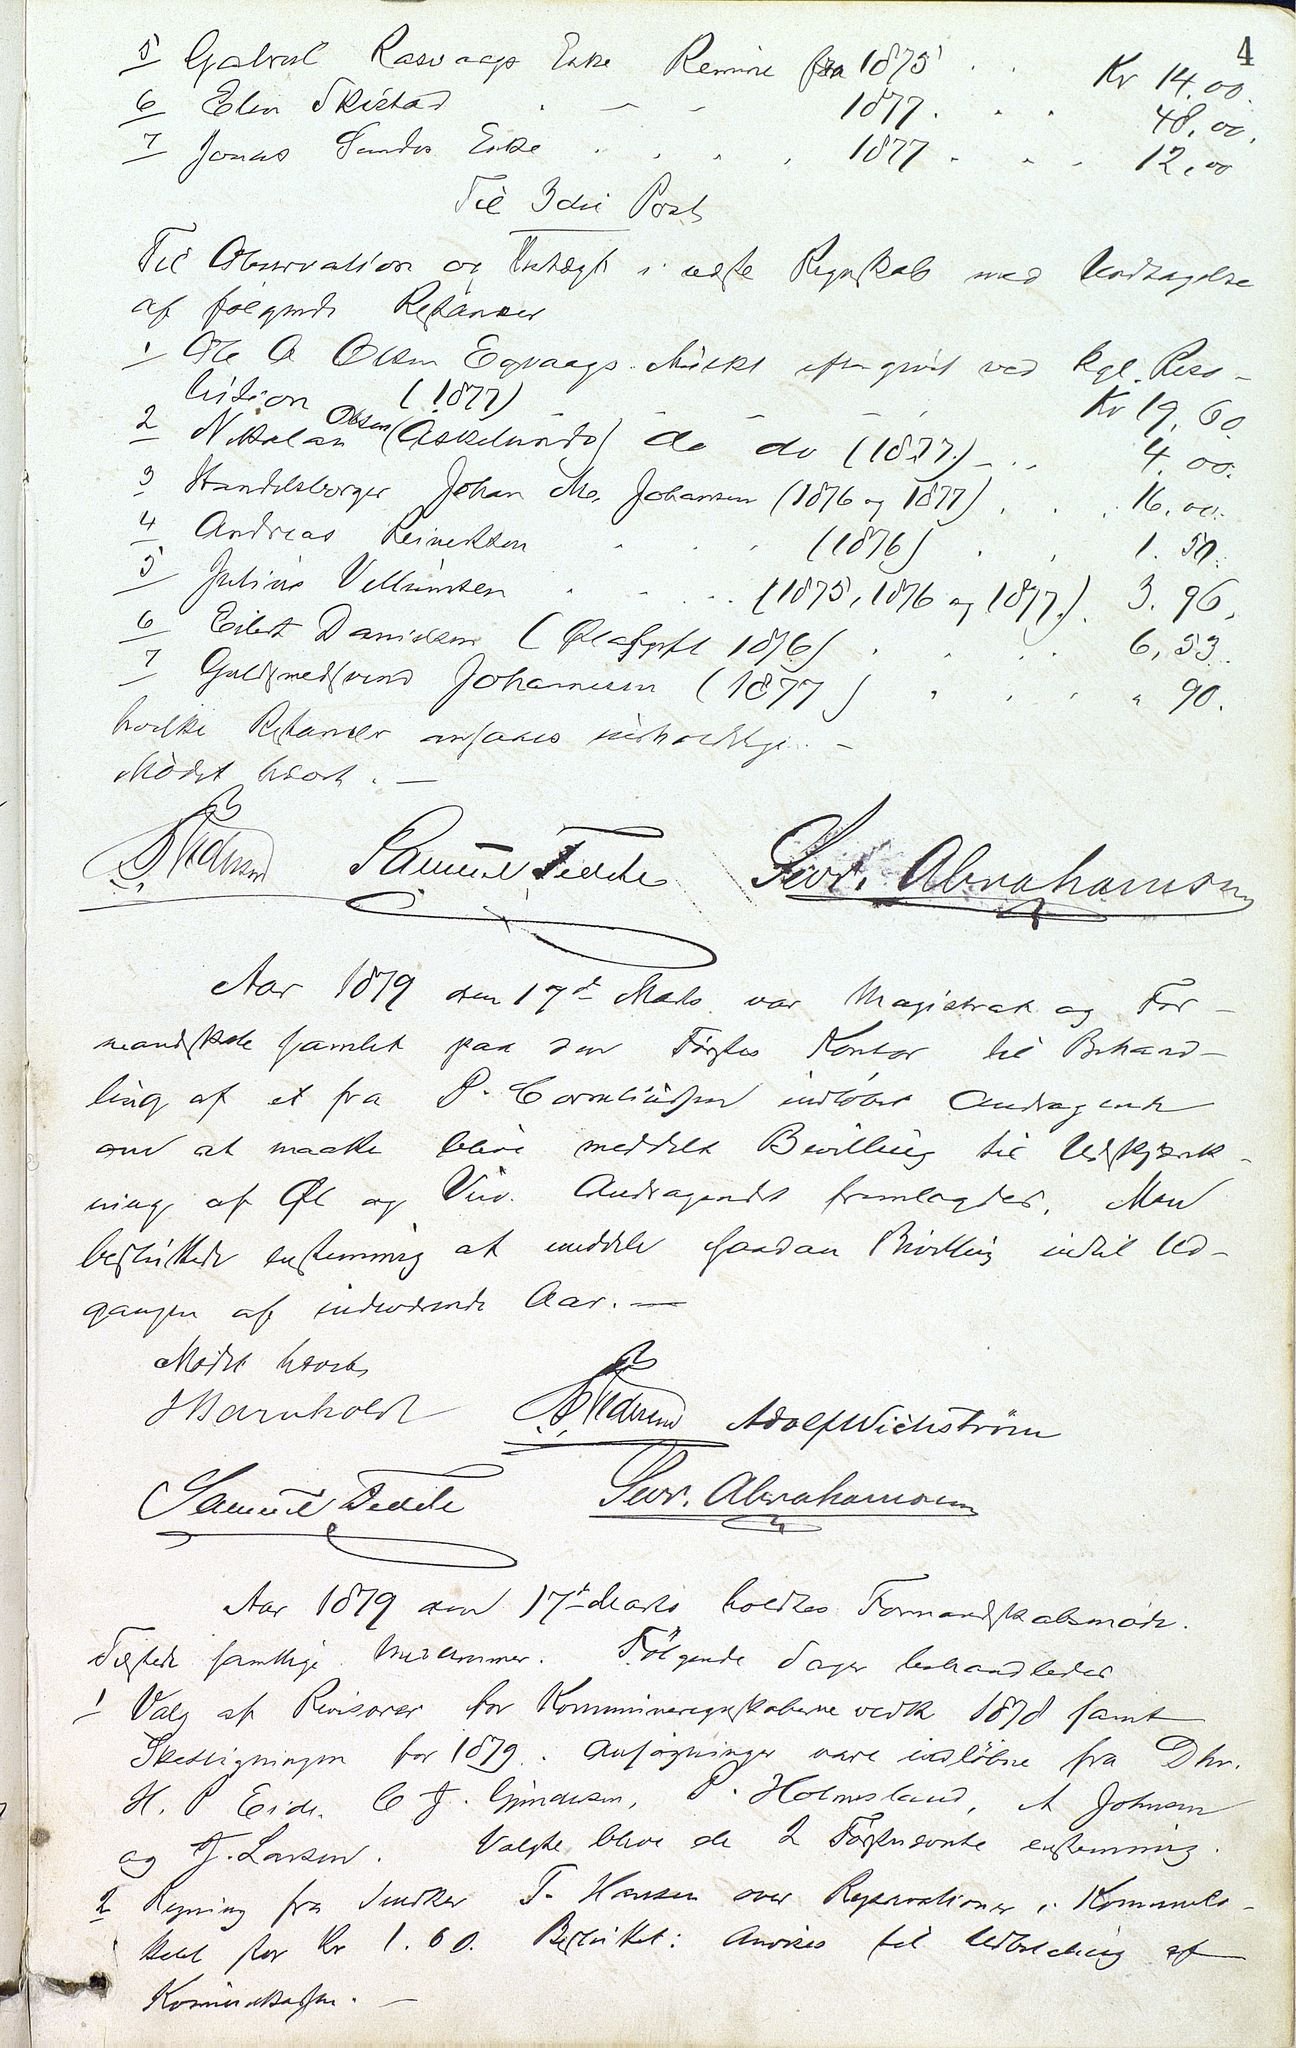 4
5 Gabriel Rasvaags Enke Remine fra 1875 . . Kr 14,00.
6 Elen Skistad . — - 1877. . . 48,00.
7 Jonas Sundes Enke . . . . 1877 . . . 12,00
Til 3die Post
Til Observation og Indtægt i næste Regnskab med Undtagelse
af følgende Restancer
1 Ole O Olsen Eqvaags Mulkt eftergivet ved kgl. Reso-
lution (1877) - - - - . Kr 19,60.
2 Nikolai Olsen (Askelunds) do do (1877) - . . 4,00.
3 Handelsborger Johan M. Johansen (1876 og 1877) . . . 16,00.
4 Andreas Reinertsen . . . (1876) . . 1.50.
5 Julius Villumsen . . . . (1875, 1876 og 1877.) . 3.96,
6 Eilert Danielsen ( 1876) . . . . 6,53.
7 Guldsmedsvend Johannesen (1877) . . . . " 90.
hvilke Restancer ansaaes uerholdelige. —
Mødet hævet. —
Pedersen Samuel Fedde Sivr. Abrahamsen
Aar 1879 den 17de Marts var Magistrat og For-
mandskab samlet paa den Førstes Kontor til Behand-
ling af et fra P. Corneliussen indløbet Andragende
om at maatte blive meddelt Bevilling til Udskjænk-
ning af Øl og Vin. Andragendet fremlagdes. Man
besluttede enstemmig at meddele saadan Bevilling indtil Ud-
gangen af indeværende Aar. —
Mødet hævet
JBarnholdt Pedersen Adolf Wichstrøm
Samuel Fedde Sivr. Abrahamsen
Aar 1879 den 17de Marts holdtes Formandskabsmøde.
Tilstede samtlige Medlemmer. Følgende Sager behandledes
1 Valg af Revisorer for Kommuneregnskaberne vedk 1878 samt
Skatligningen for 1879. Ansøgninger vare indløbne fra Dhr.
H. P Eide. C J. Gundersen, P. Holmesland, A Johnsen
og J. Larsen. Valgte bleve de 2 Førstnævnte enstemmig.
2 Regning fra Snedker T. Hansen over Reparationer i Kommunelo-
kalet stor Kr 1.60. Besluttet: Anvises til Udbetaling af
Kommunekassen. —